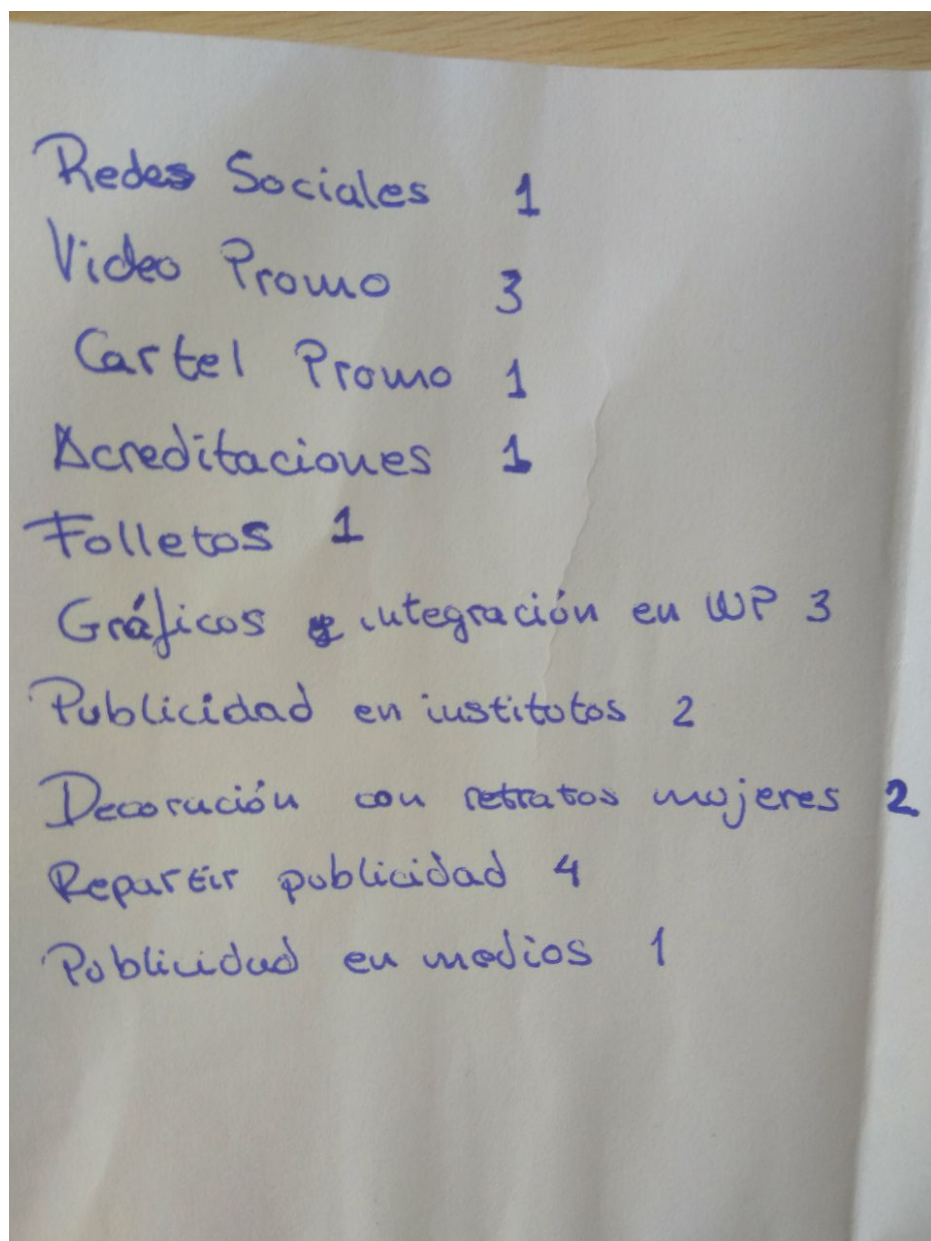 Redes Sociales 1
Video Promo 3
Cartel Promo 1
Acreditaciones 1
Folletos 1
Gráficos e integración en WP 3
Publicidad en institutos 2
Decoración con retratos mujeres 2
Repartir publicidad 4
Publicidad en medios 1